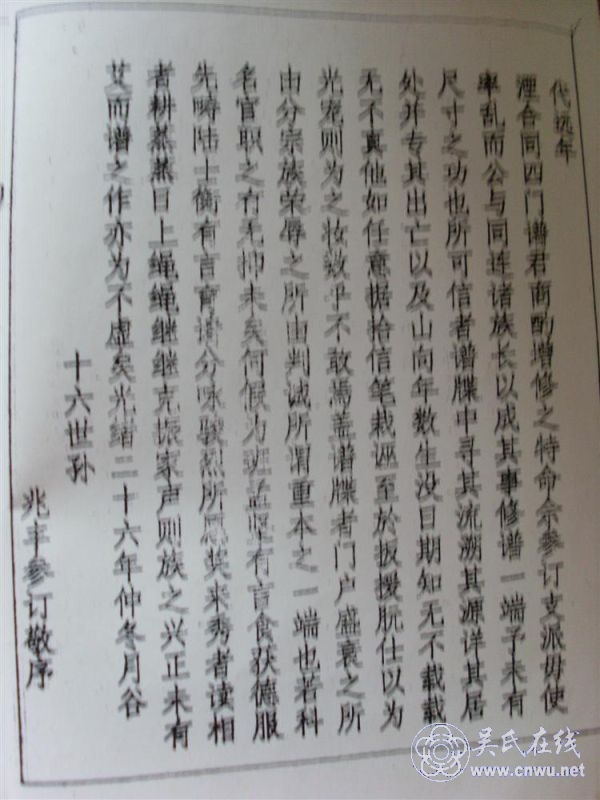 代远年
湮合同四门谱君商酌增修之特命余参订支派毋使
率乱而公与同连诸族长以成其事修谱一端予未有
尺寸之功也所可信者谱牒中寻其流溯其源详其居
处并专其出亡以及山向年数生没日期知无不载载
无不真他如任意据拾信笔栽诬至於扳援朊仕以为
光宠则为之妆数乎不敢焉盖谱牒者门户盛衰之所
由分宗族荣辱之所由判诚所谓重本之一端也若科
名官职之有无抑未矣何假为班孟坚有言食获德服
先畴陆士衡有言育讲分咏骏烈所愿英来秀者读相
者耕蒸蒸日上绳绳继继克振家声则族之兴正未有
艾而谱之作亦为不虚矣光绪二十六年仲冬月谷
十六世孙
兆丰参订敬序
吴氏在线
www.cnwu.net